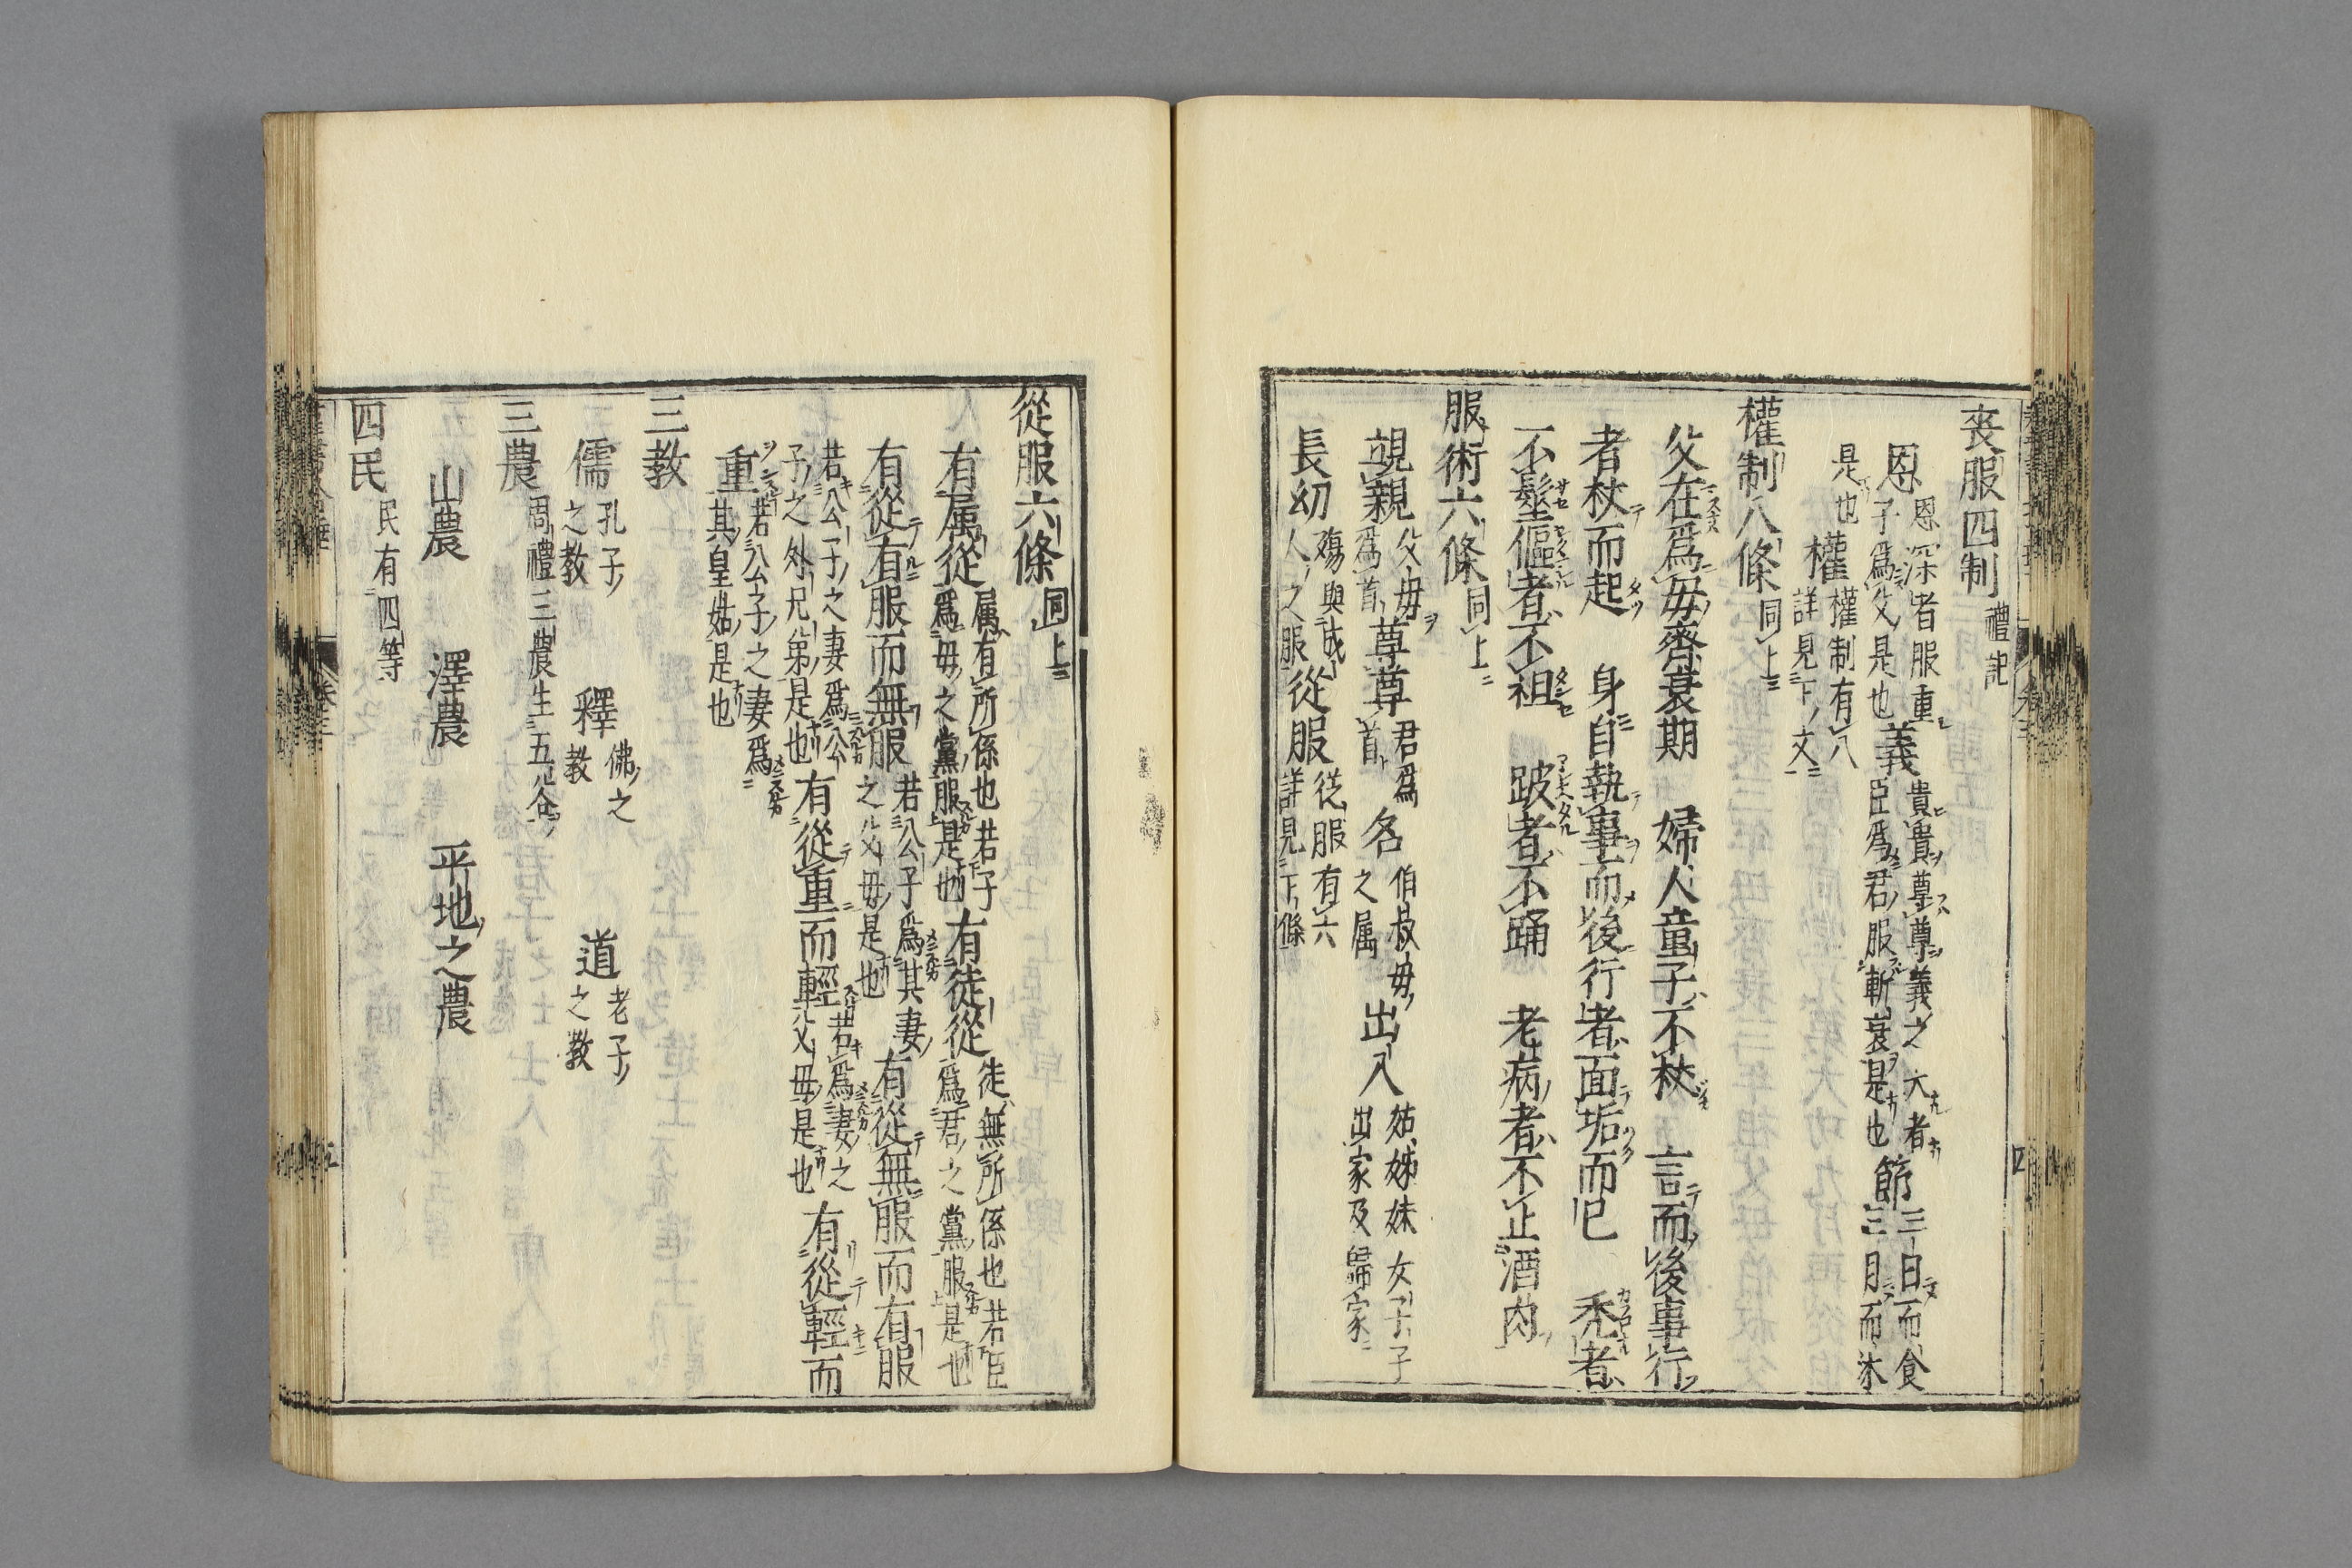 喪服四制 禮記
恩 恩深者服重 子爲父是也 義 貴貴尊尊義之大者 臣爲君服斬衰是也 節 三日而食 三月而沐
是也 權 權制有八 詳見下文
權制八條 同上
父在爲母齊衰期 婦人童子不杖 言而後事行
者杖而起 身自執事而後行者面垢而已 禿者
不髽傴者不袒 跛者不踊 老病者不止酒肉
服術六條 同上
親親 父母爲首 尊尊 君爲首 名 伯叔母之属 出入 姑姊妹女子子出家及歸家
長幼 殤與成人之服 從服 從服有六詳見下條
從服六條 同上
有属從 属有所係也若子爲母之黨服是也 有徒從 徒無所係也若臣爲君之黨服是也
有從有服而無服 若公子爲其妻之父母是也 有從無服而有服
若公子之妻爲公子之外兄弟是也 有從重而輕 若爲妻之父母是也 有從輕而
重 若公子之妻爲其皇姑是也
三教
儒 孔子之教 釋 佛之教 道 老子之教
三農 周禮三農生五谷
山農 澤農 平地之農
四民 民有四等
卷三
四